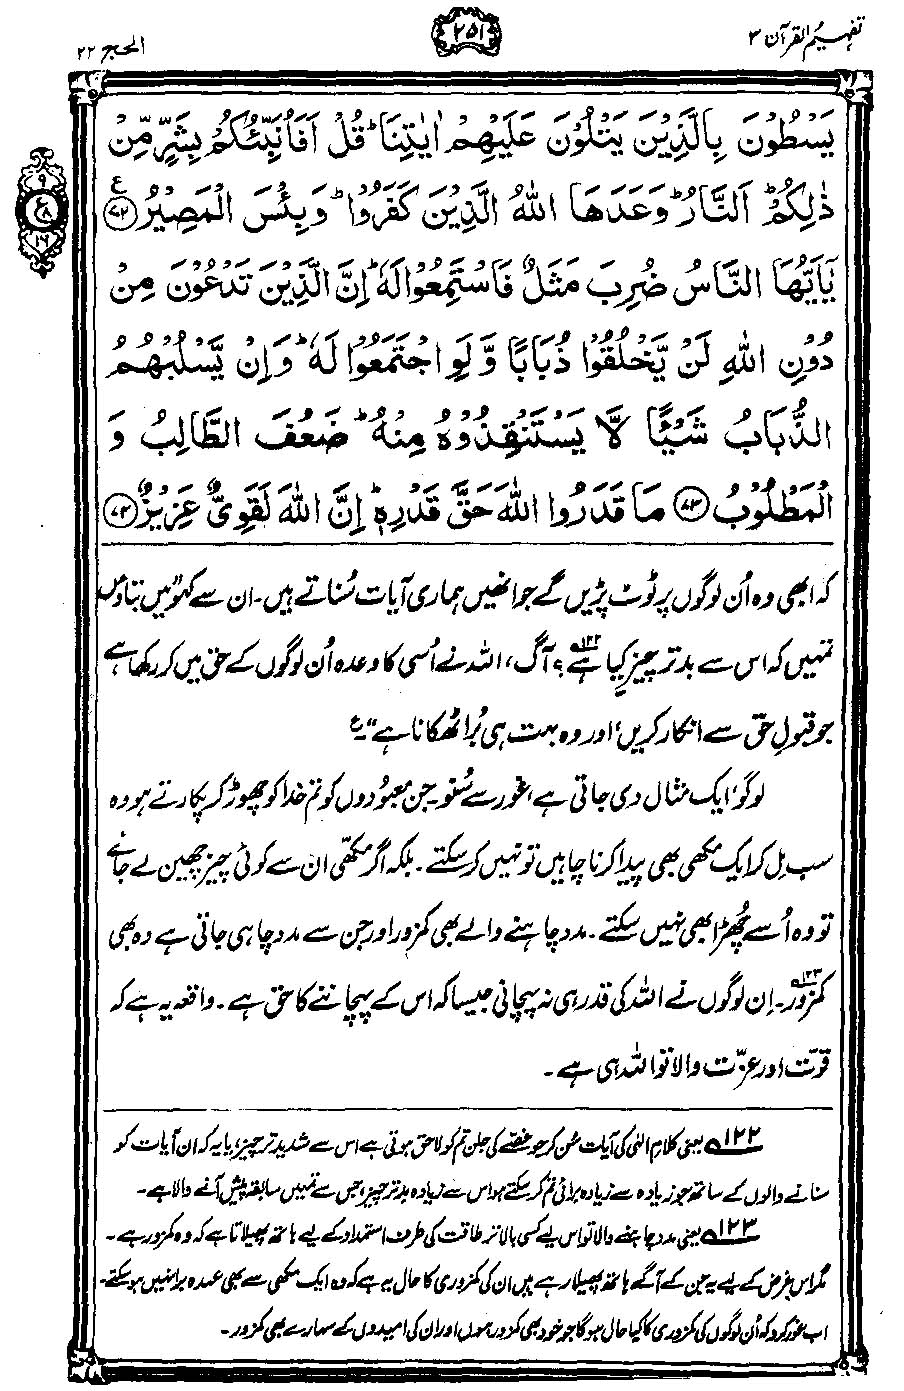 تفہیم القرآن ۳
۲۵۱
الحج ۲۲
يَسْطُوْنَ بِالَّذِيْنَ يَتْلُوْنَ عَلَيْهِمْ اٰيٰتِنَا ؕ قُلْ اَفَاُنَبِّئُكُمْ بِشَرٍّ مِّنْ
ذٰلِكُمْ ؕ اَلنَّارُ ؕ وَعَدَهَا اللّٰهُ الَّذِيْنَ كَفَرُوْا ؕ وَبِئْسَ الْمَصِيْرُ ﴿۷۲﴾ ع
يٰۤاَيُّهَا النَّاسُ ضُرِبَ مَثَلٌ فَاسْتَمِعُوْا لَهٗ ؕ اِنَّ الَّذِيْنَ تَدْعُوْنَ مِنْ
دُوْنِ اللّٰهِ لَنْ يَّخْلُقُوْا ذُبَابًا وَّلَوِ اجْتَمَعُوْا لَهٗ ؕ وَاِنْ يَّسْلُبْهُمُ
الذُّبَابُ شَيْـًٔا لَّا يَسْتَنْقِذُوْهُ مِنْهُ ؕ ضَعُفَ الطَّالِبُ وَ
الْمَطْلُوْبُ ﴿۷۳﴾ مَا قَدَرُوا اللّٰهَ حَقَّ قَدْرِهٖ ؕ اِنَّ اللّٰهَ لَقَوِىٌّ عَزِيْزٌ ﴿۷۴﴾
۹
ع ۸
۱۶
کہ ابھی وہ اُن لوگوں پر ٹوٹ پڑیں گے جو انھیں ہماری آیات سُناتے ہیں۔ ان سے کہو ”میں بتاؤں
تمہیں کہ اس سے بدتر چیز کیا ہے؟۱۲۲ آگ، اللہ نے اُسی کا وعدہ اُن لوگوں کے حق میں کر رکھا ہے
جو قبولِ حق سے انکار کریں، اور وہ بہت ہی بُرا ٹھکانا ہے“۔ ع
لوگو، ایک مثال دی جاتی ہے، غور سے سُنو۔ جن معبُودوں کو تم خدا کو چھوڑ کر پکارتے ہو وہ
سب مِل کر ایک مکھی بھی پیدا کرنا چاہیں تو نہیں کر سکتے۔ بلکہ اگر مکھّی ان سے کوئی چیز چھین لے جائے
تو وہ اُسے چُھڑا بھی نہیں سکتے۔ مدد چاہنے والے بھی کمزور اور جن سے مدد چاہی جاتی ہے وہ بھی
کمزور۱۲۳۔ اِن لوگوں نے اللہ کی قدر ہی نہ پہچانی جیسا کہ اس کے پہچاننے کا حق ہے۔ واقعہ یہ ہے کہ
قوّت اور عزّت والا تو اللہ ہی ہے۔
۱۲۲ یعنی کلامِ الٰہی کی آیات سُن کر جو غصّے کی جلن تم کو لاحق ہوتی ہے اس سے شدید تر چیز، یا یہ کہ ان آیات کو
سنانے والوں کے ساتھ جو زیادہ سے زیادہ برائی تم کر سکتے ہو اس سے زیادہ بدتر چیز، جس سے تمہیں سابقہ پیش آنے والا ہے۔
۱۲۳ یعنی مدد چاہنے والا تو اس لیے کسی بالاتر طاقت کی طرف استمداد کے لیے ہاتھ پھیلاتا ہے کہ وہ کمزور ہے۔
مگر اس غرض کے لیے یہ جن کے آگے ہاتھ پھیلا رہے ہیں ان کی کمزوری کا حال یہ ہے کہ وہ ایک مکھی سے بھی عہدہ برا نہیں ہو سکتے۔
اب غور کرو کہ اُن لوگوں کی کمزوری کا کیا حال ہوگا جو خود بھی کمزور ہوں اور ان کی امیدوں کے سہارے بھی کمزور۔